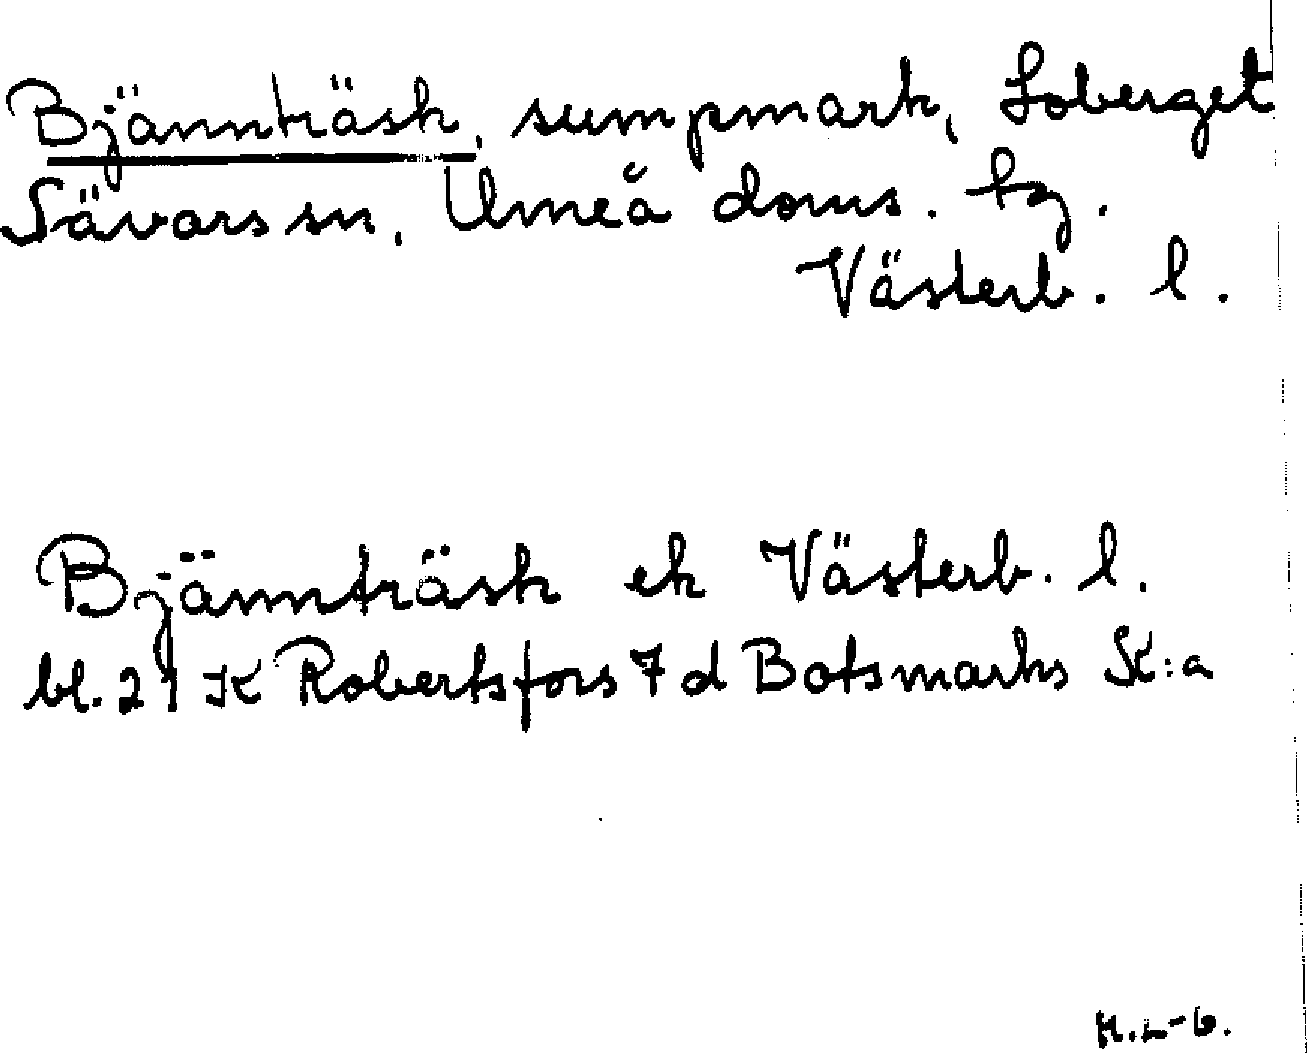 Bjännträsk, sumpmark, Loberget
Sävars sn, Umeå doms. tg.
Västerb. l.
Bjännträsk ek Västerb. l.
bl. 21 K Robertsfors 7 d Botsmarks K:a
H.L-b.